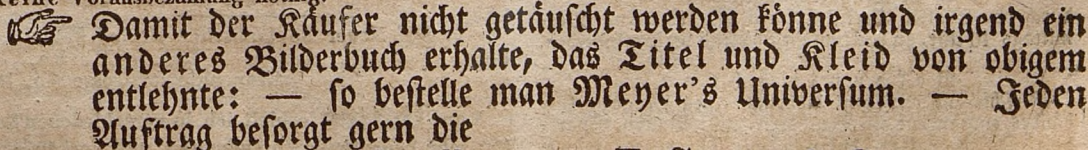 ☞ Damit der Käufer nicht getäuſcht werden könne und irgend ein
anderes Bilderbuch erhalte, das Titel und Kleid von obigem
entlehnte: — ſo beſtelle man Meyer's Univerſum. — Jeden
Auftrag beſorgt gern die